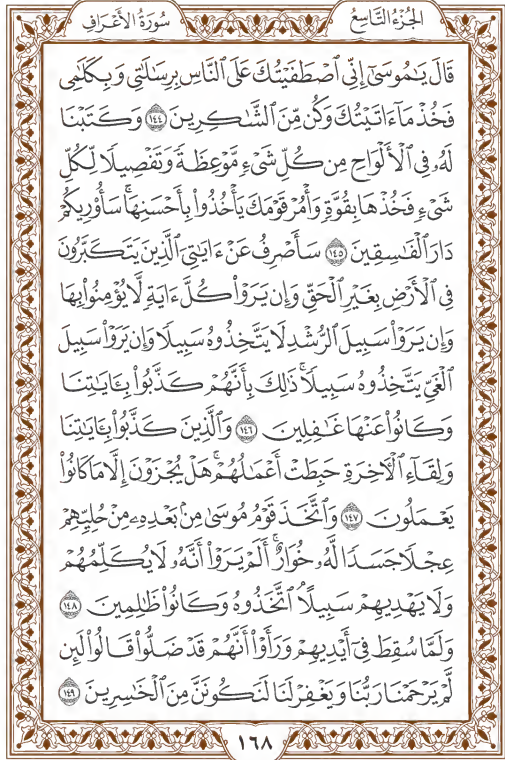 الجُزْءُ التَّاسِعُ سُورَةُ الأَعْرَافِ
قَالَ يَٰمُوسَىٰٓ إِنِّي ٱصْطَفَيْتُكَ عَلَى ٱلنَّاسِ بِرِسَٰلَٰتِي وَبِكَلَٰمِي
فَخُذْ مَآ ءَاتَيْتُكَ وَكُن مِّنَ ٱلشَّٰكِرِينَ ١٤٤ وَكَتَبْنَا
لَهُۥ فِي ٱلْأَلْوَاحِ مِن كُلِّ شَيْءٍ مَّوْعِظَةً وَتَفْصِيلًا لِّكُلِّ
شَيْءٍ فَخُذْهَا بِقُوَّةٍ وَأْمُرْ قَوْمَكَ يَأْخُذُوا۟ بِأَحْسَنِهَاۚ سَأُو۟رِيكُمْ
دَارَ ٱلْفَٰسِقِينَ ١٤٥ سَأَصْرِفُ عَنْ ءَايَٰتِيَ ٱلَّذِينَ يَتَكَبَّرُونَ
فِي ٱلْأَرْضِ بِغَيْرِ ٱلْحَقِّ وَإِن يَرَوْا۟ كُلَّ ءَايَةٍ لَّا يُؤْمِنُوا۟ بِهَا
وَإِن يَرَوْا۟ سَبِيلَ ٱلرُّشْدِ لَا يَتَّخِذُوهُ سَبِيلًا وَإِن يَرَوْا۟ سَبِيلَ
ٱلْغَيِّ يَتَّخِذُوهُ سَبِيلًاۚ ذَٰلِكَ بِأَنَّهُمْ كَذَّبُوا۟ بِـَٔايَٰتِنَا
وَكَانُوا۟ عَنْهَا غَٰفِلِينَ ١٤٦ وَٱلَّذِينَ كَذَّبُوا۟ بِـَٔايَٰتِنَا
وَلِقَآءِ ٱلْأَخِرَةِ حَبِطَتْ أَعْمَٰلُهُمْۚ هَلْ يُجْزَوْنَ إِلَّا مَا كَانُوا۟
يَعْمَلُونَ ١٤٧ وَٱتَّخَذَ قَوْمُ مُوسَىٰ مِنۢ بَعْدِهِۦ مِنْ حُلِيِّهِمْ
عِجْلًا جَسَدًا لَّهُۥ خُوَارٌۚ أَلَمْ يَرَوْا۟ أَنَّهُۥ لَا يُكَلِّمُهُمْ
وَلَا يَهْدِيهِمْ سَبِيلًاۘ ٱتَّخَذُوهُ وَكَانُوا۟ ظَٰلِمِينَ ١٤٨
وَلَمَّا سُقِطَ فِيٓ أَيْدِيهِمْ وَرَأَوْا۟ أَنَّهُمْ قَدْ ضَلُّوا۟ قَالُوا۟ لَئِن
لَّمْ يَرْحَمْنَا رَبُّنَا وَيَغْفِرْ لَنَا لَنَكُونَنَّ مِنَ ٱلْخَٰسِرِينَ ١٤٩
١٦٨